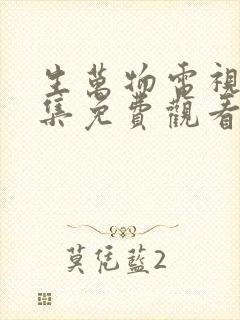 生萬物電視
集免費觀看
莫凭藍2